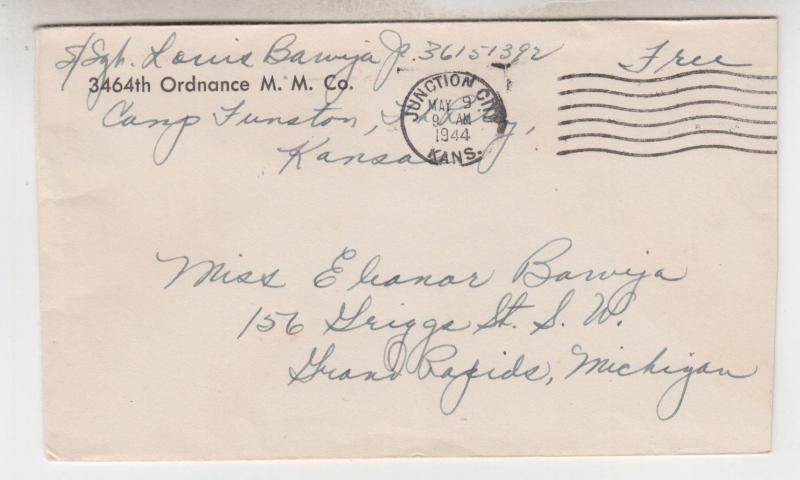 S/Sgt. Louis Bawija Jr. 36151392
Free
3464th Ordnance M. M. Co.
Camp Funston,
Kansas
JUNCTION CITY
MAY 9
9 AM
1944
KANS.
Miss Eleanor Bawija
156 Griggs St. S. W.
Grand Rapids, Michigan